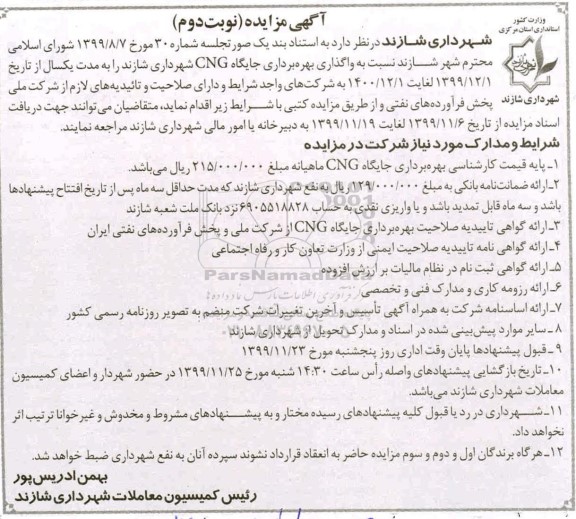 آگهی مزایده (نوبت دوم)
وزارت کشور
استانداری استان مرکزی
شهرداری شازند
شهرداری شازند در نظر دارد به استناد بند یک صورتجلسه شماره ۳۰ مورخ ۱۳۹۹/۸/۷ شورای اسلامی
محترم شهر شازند نسبت به واگذاری بهره‌برداری جایگاه CNG شهرداری شازند را به مدت یکسال از تاریخ
۱۳۹۹/۱۲/۱ لغایت ۱۴۰۰/۱۲/۱ به شرکت‌های واجد شرایط و دارای صلاحیت و تائیدیه‌های لازم از شرکت ملی
پخش فرآورده‌های نفتی و از طریق مزایده کتبی با شرایط زیر اقدام نماید، متقاضیان می‌توانند جهت دریافت
اسناد مزایده از تاریخ ۱۳۹۹/۱۱/۶ لغایت ۱۳۹۹/۱۱/۱۹ به دبیرخانه یا امور مالی شهرداری شازند مراجعه نمایند.
شرایط و مدارک مورد نیاز شرکت در مزایده
۱- پایه قیمت کارشناسی بهره‌برداری جایگاه CNG ماهیانه مبلغ ۲۱۵/۰۰۰/۰۰۰ ریال می‌باشد.
۲- ارائه ضمانت‌نامه بانکی به مبلغ ۱۲۹/۰۰۰/۰۰۰ ریال به نفع شهرداری شازند که مدت حداقل سه ماه پس از تاریخ افتتاح پیشنهادها
باشد و سه ماه قابل تمدید باشد و یا واریزی نقدی به حساب ۶۹۰۵۵۱۸۸۲۸ نزد بانک ملت شعبه شازند
۳- ارائه گواهی تاییدیه صلاحیت بهره‌برداری جایگاه CNG از شرکت ملی و پخش فرآورده‌های نفتی ایران
۴- ارائه گواهی نامه تاییدیه صلاحیت ایمنی از وزارت تعاون کار و رفاه اجتماعی
۵- ارائه گواهی ثبت نام در نظام مالیات بر ارزش افزوده
۶- ارائه رزومه کاری و مدارک فنی و تخصصی
۷- ارائه اساسنامه شرکت به همراه آگهی تأسیس و آخرین تغییرات شرکت منضم به تصویر روزنامه رسمی کشور
۸- سایر موارد پیش‌بینی شده در اسناد و مدارک تحویل از شهرداری شازند
۹- قبول پیشنهادها پایان وقت اداری روز پنجشنبه مورخ ۱۳۹۹/۱۱/۲۳
۱۰- تاریخ بازگشایی پیشنهادهای واصله رأس ساعت ۱۴:۳۰ شنبه مورخ ۱۳۹۹/۱۱/۲۵ در حضور شهردار و اعضای کمیسیون
معاملات شهرداری شازند می‌باشد.
۱۱- شهرداری در رد یا قبول کلیه پیشنهادهای رسیده مختار و به پیشنهادهای مشروط و مخدوش و غیرخوانا ترتیب اثر
نخواهد داد.
۱۲- هرگاه برندگان اول و دوم و سوم مزایده حاضر به انعقاد قرارداد نشوند سپرده آنان به نفع شهرداری ضبط خواهد شد.
بهمن ادریس‌پور
رئیس کمیسیون معاملات شهرداری شازند
ParsNamadData